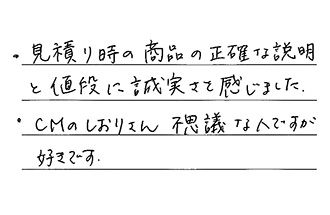 ・見積り時の商品の正確な説明
と値段に誠実さを感じました.
・CMのしおりさん 不思議な人ですが
好きです.